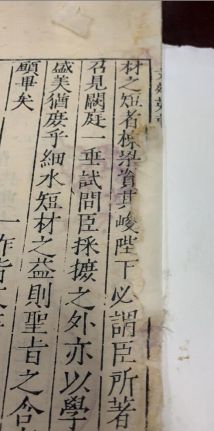 材之短者榱梁資其峻陛下必謂臣所著
召見闕庭一垂試問臣採摭之外亦以學
盛美猶庶乎細水短材之益則聖旨之含
願畢矣
一作皆